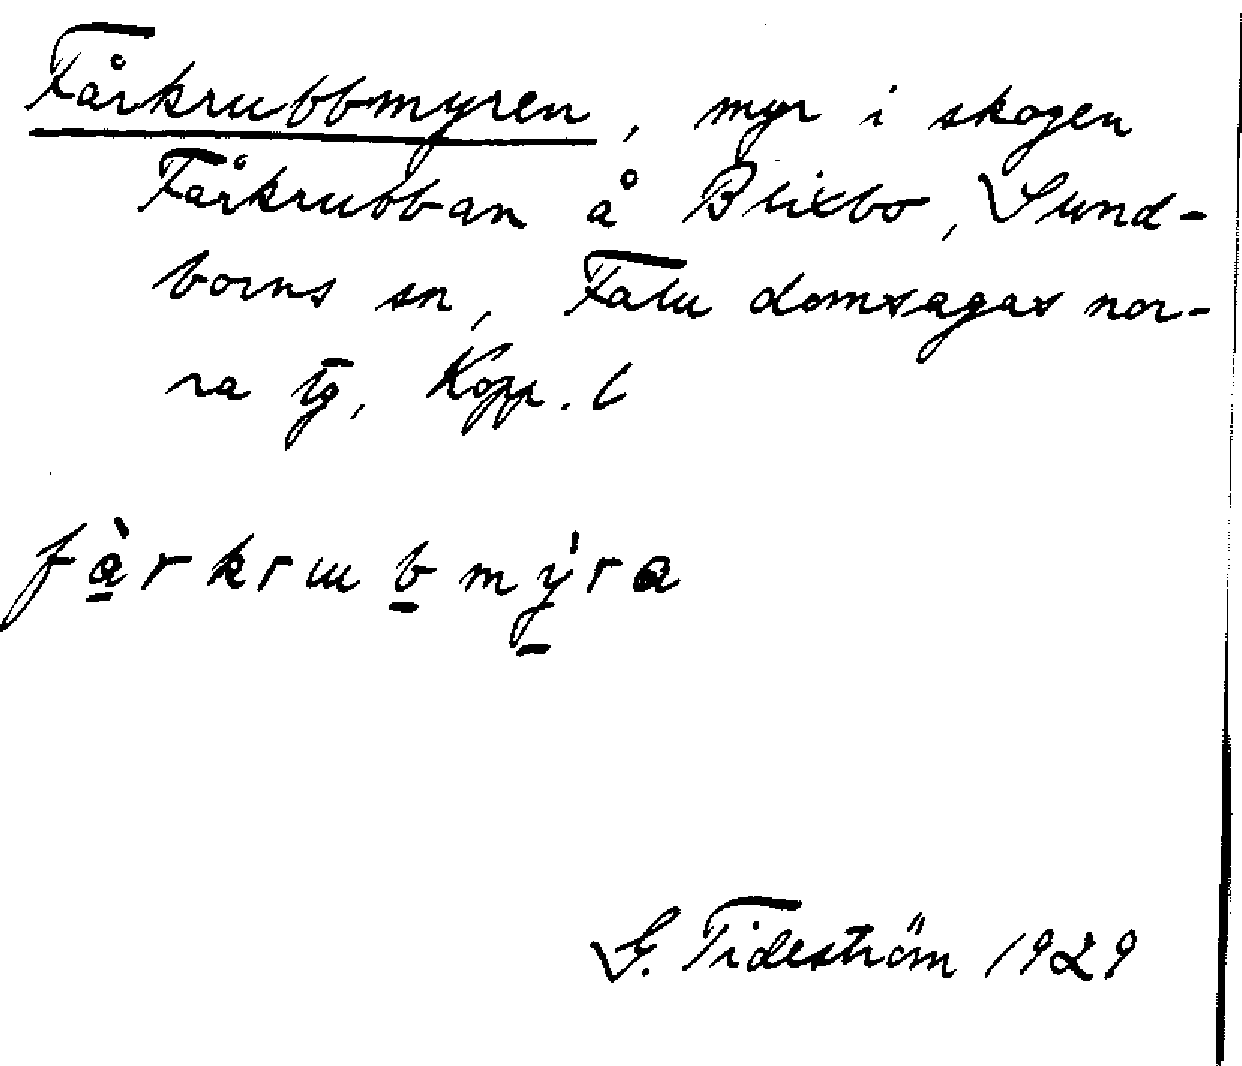 Fårkrubbmyren, myr i skogen
Fårkrubban å Blixbo, Sund-
borns sn, Falu domsagas nor-
ra tg, Kopp. l
fàrkrubmy̍ra
G. Tideström 1929